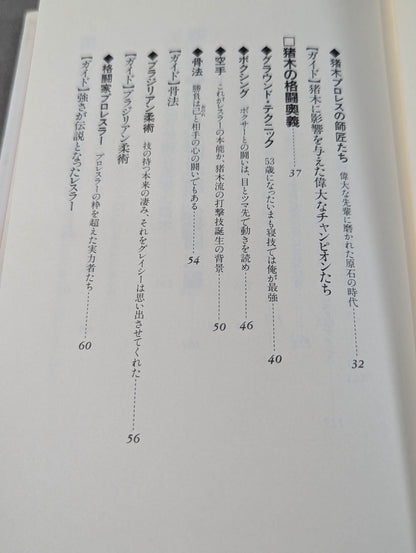 ◆猪木プロレスの師匠たち 偉大な先輩に磨かれた原石の時代……32
【ガイド】猪木に影響を与えた偉大なチャンピオンたち
□猪木の格闘奥義……37
◆グラウンド・テクニック 53歳になったいまも寝技では俺が最強……40
◆ボクシング ボクサーとの闘いは、目とツマ先で動きを読め……46
◆空手 これがレスラーの本能か、猪木流の打撃技誕生の背景……50
◆骨法 勝負は己と相手の心の闘いでもある……54
【ガイド】骨法
◆ブラジリアン柔術 技の持つ本来の凄み、それをグレイシーは思い出させてくれた……56
【ガイド】ブラジリアン柔術
◆格闘家プロレスラー プロレスラーの枠を超えた実力者たち……60
【ガイド】強さが伝説となったレスラー